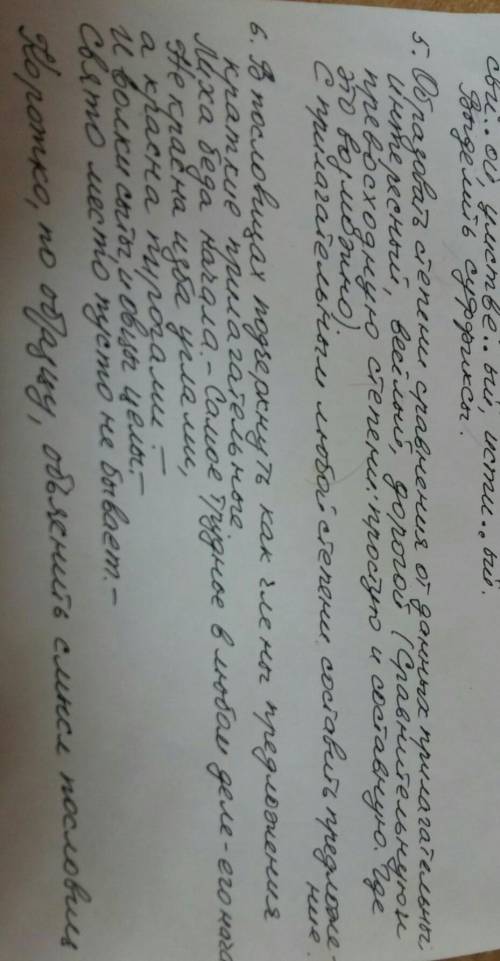 свой..ой, умстве..ый, исти..ый.
Выделить суффиксы.
5. Образовать степени сравнения от данных прилагательных
интересный, весёлый, дорогой (Сравнительную и
превосходную степени: простую и составную. Где
это возможно)
С прилагательным любой степени составить предложе-
ние.
6. В пословицах подчеркнуть как члены предложения
краткие прилагательные.
Лиха беда начала. - Самое трудное в любом деле - его нача
Не красна изба углами,
а красна пирогами. -
И волки сыты, и овцы целы. -
Свято место пусто не бывает. -
Коротко, по образцу, объяснить смысл пословиц